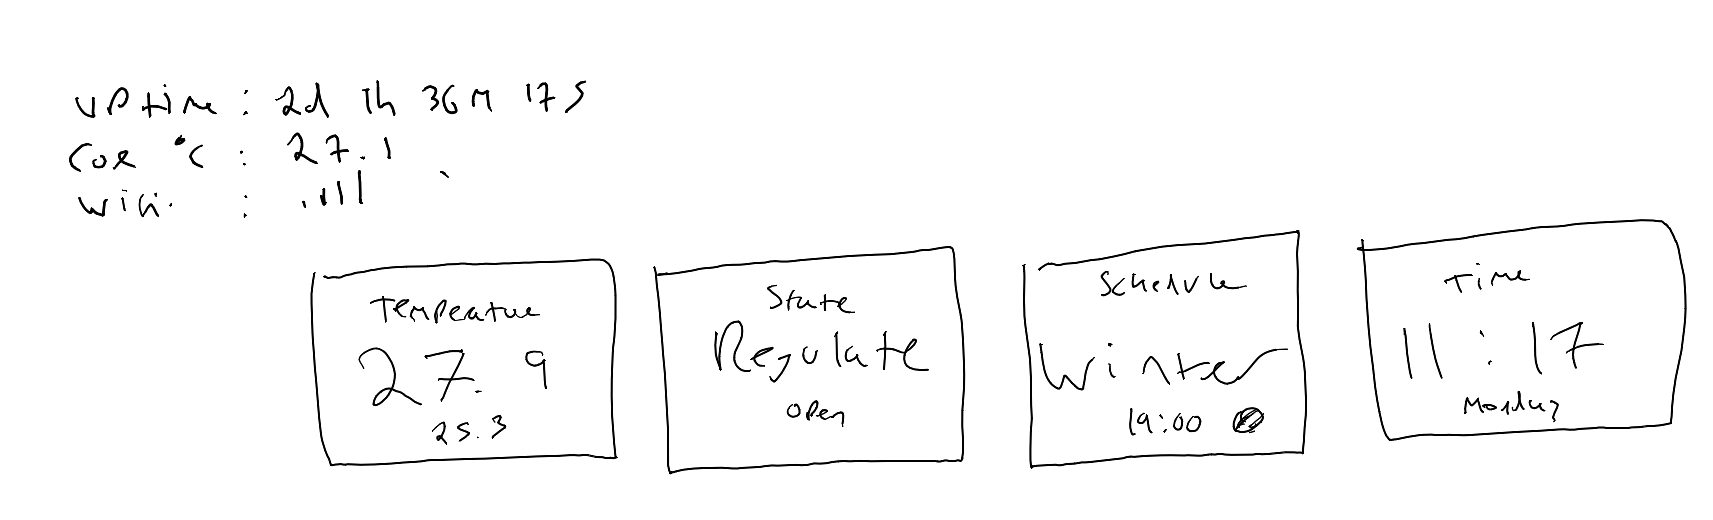 uptime : 2d 1h 36m 17s
Core °C : 27.1
Wifi :
Temperatue
27.9
25.3
State
Regulate
open
Schedule
Winter
19:00
Time
11:17
Monday